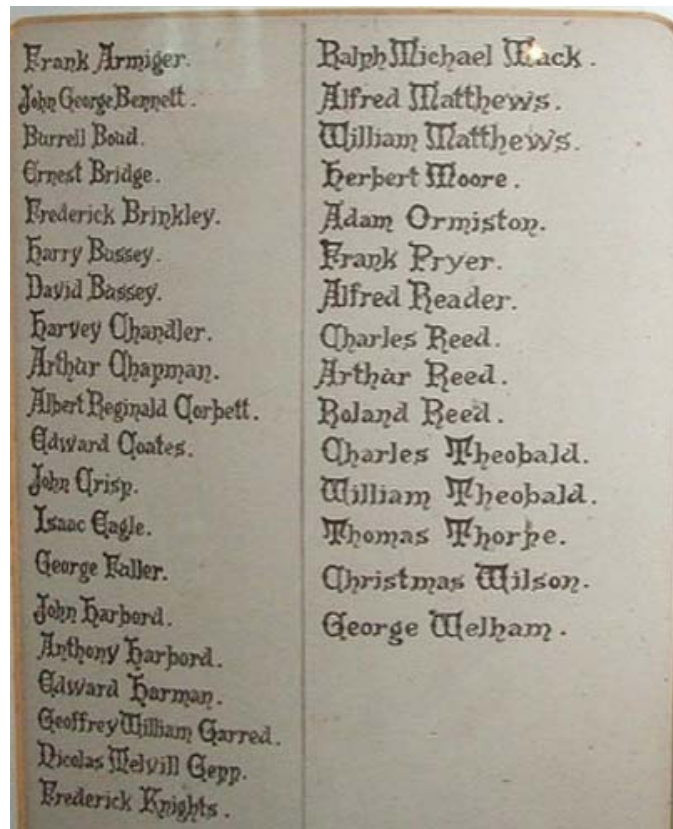 Frank Armiger.
John George Bennett.
Burrell Boud.
Ernest Bridge.
Frederick Brinkley.
Harry Bussey.
David Bussey.
Harvey Chandler.
Arthur Chapman.
Albert Reginald Corbett.
Edward Coates.
John Crisp.
Isaac Eagle.
George Fuller.
John Harbord.
Anthony Harbord.
Edward Harman.
Geoffrey William Garred.
Nicolas Melvill Gepp.
Frederick Knights.
Ralph Michael Mack.
Alfred Matthews.
William Matthews.
Herbert Moore.
Adam Ormiston.
Frank Pryer.
Alfred Reader.
Charles Reed.
Arthur Reed.
Roland Reed.
Charles Theobald.
William Theobald.
Thomas Thorpe.
Christmas Wilson.
George Welham.